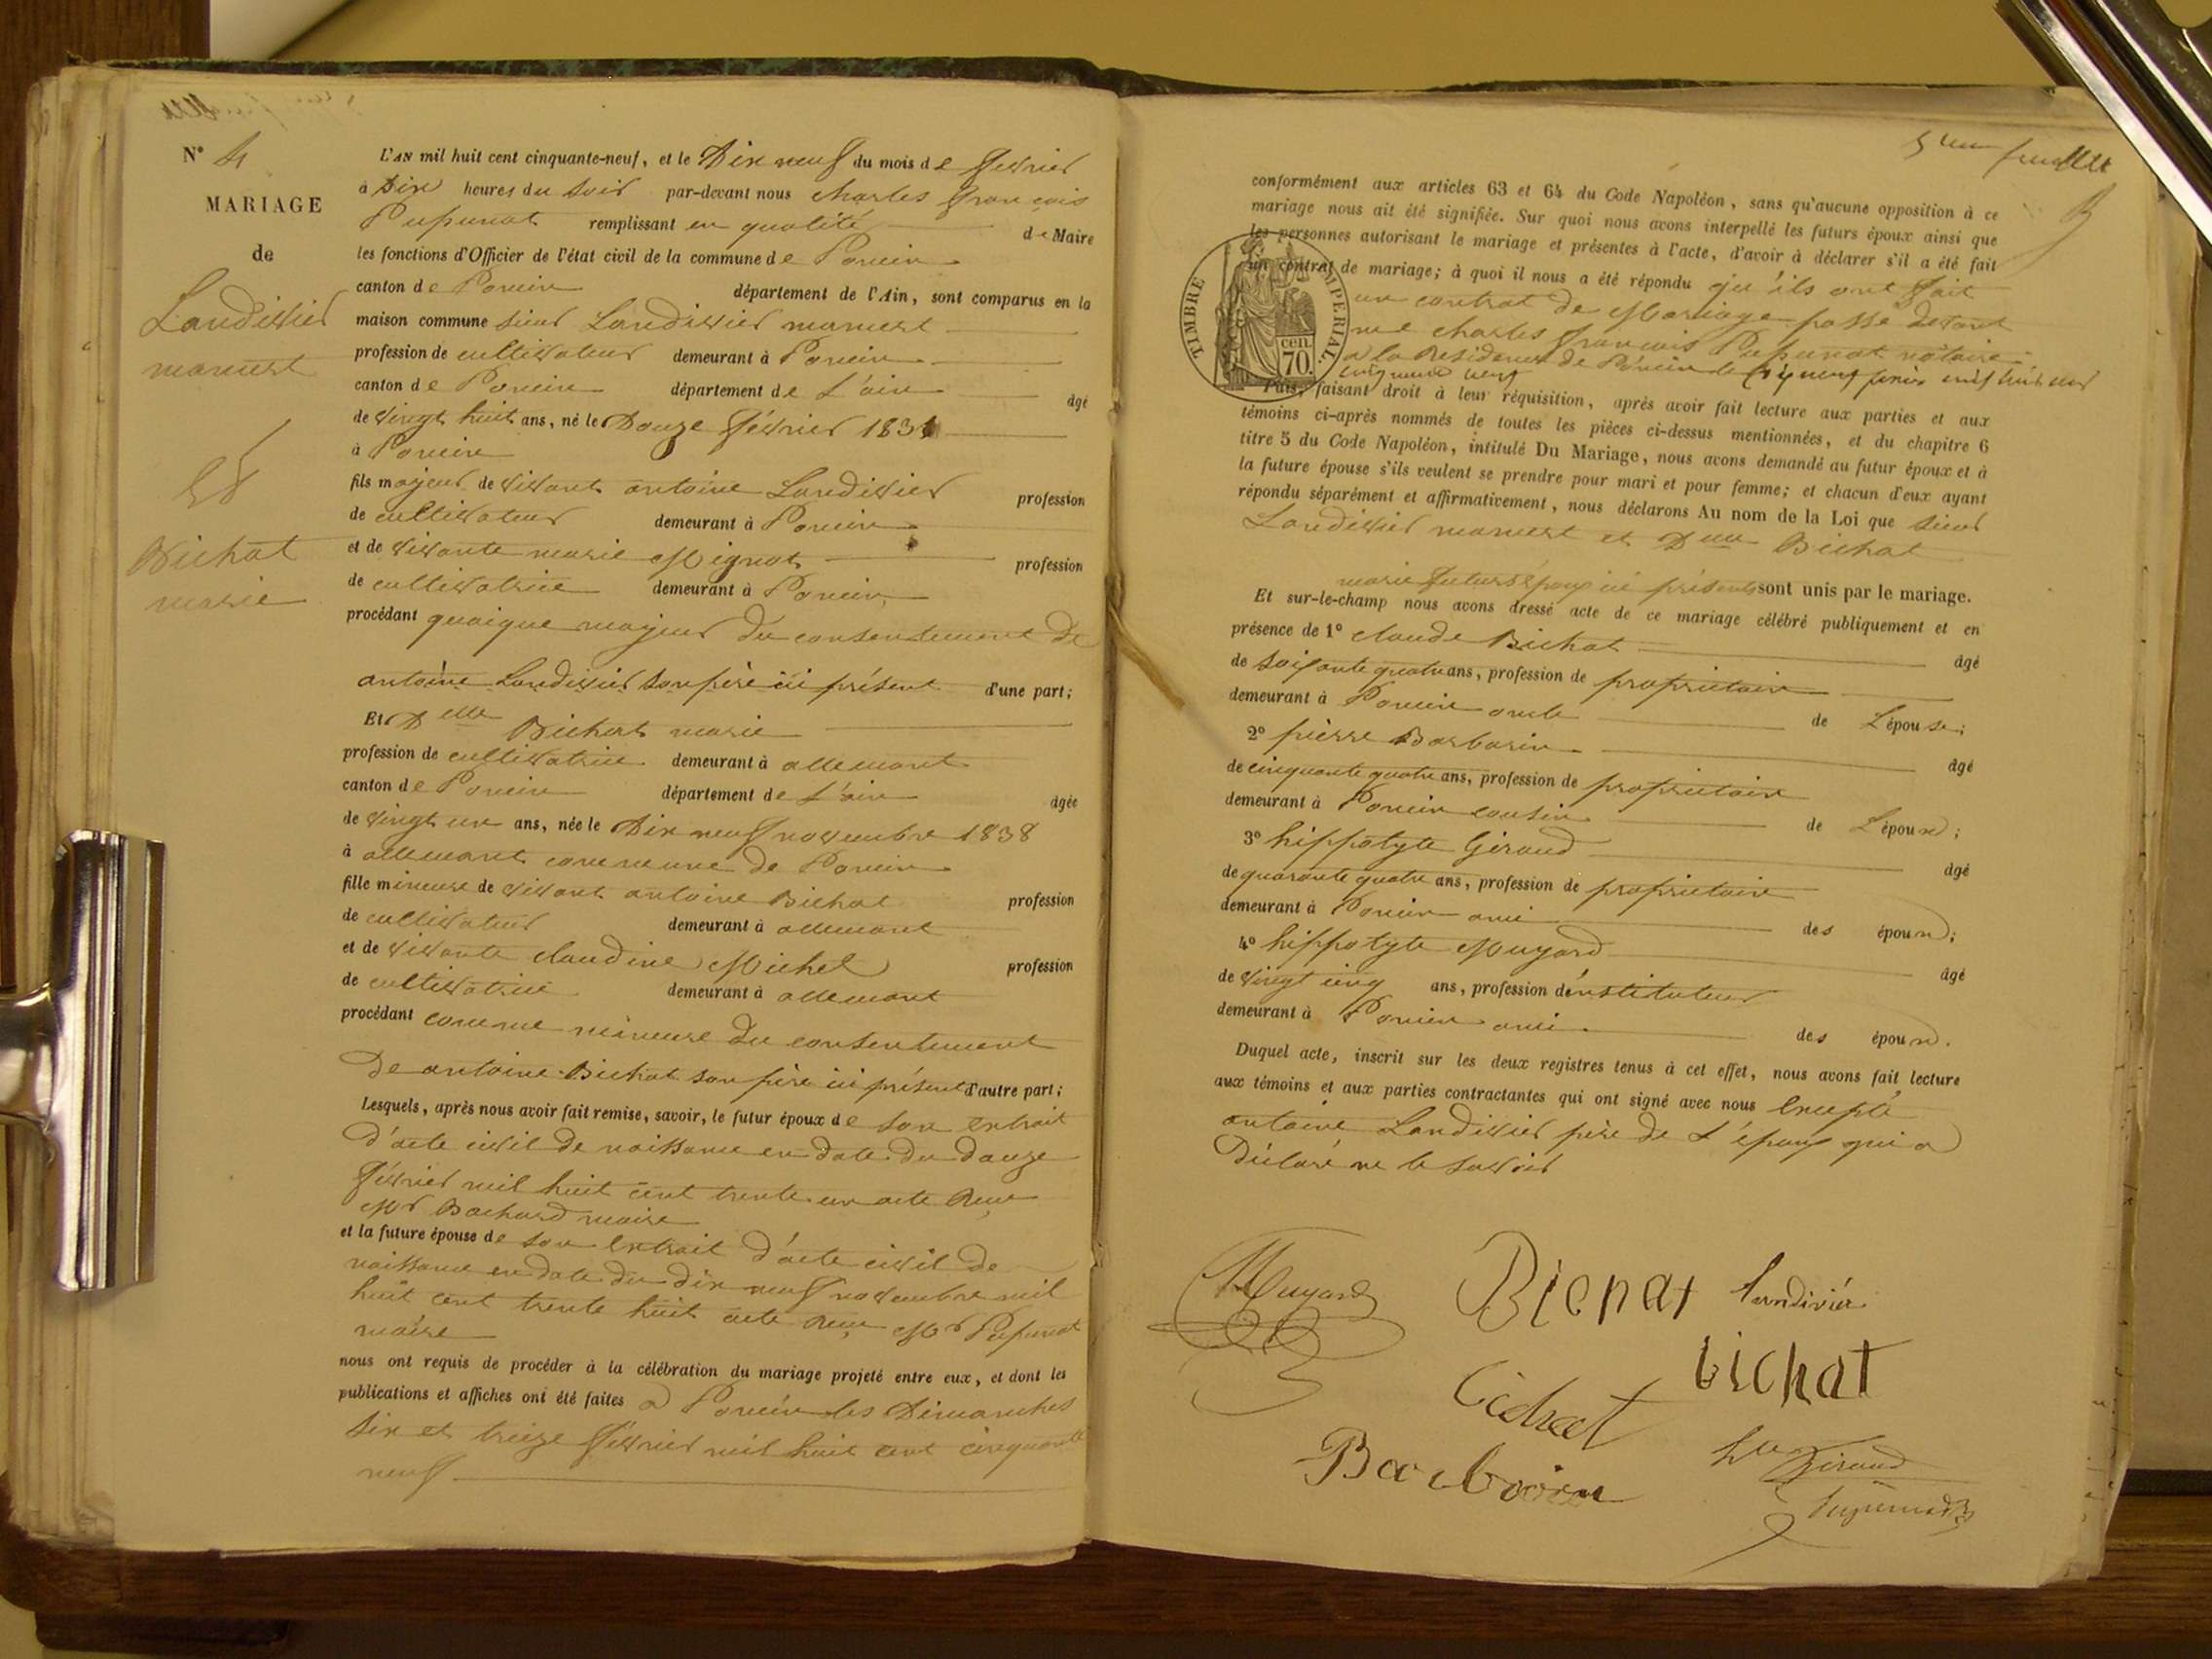 N° 4
MARIAGE
de
Landivier
mamert
Et
Bichat
marie
L'AN mil huit cent cinquante-neuf, et le Dix neuf du mois de février
à Dix heures du soir par-devant nous charles françois
Pupunat remplissant en qualité de Maire
les fonctions d'Officier de l'état civil de la commune de Poncin
canton de Poncin département de l'Ain, sont comparus en la
maison commune sieur Landivier mamert
profession de cultivateur demeurant à Poncin
canton de Poncin département de L'ain âgé
de vingt huit ans, né le Douze février 1831
à Poncin
fils majeur de vivant antoine Landivier profession
de cultivateur demeurant à Poncin
et de vivante marie Mignot profession
de cultivatrice demeurant à Poncin
procédant quoique majeur du consentement de
antoine Landivier son père ici présent d'une part;
Et Delle Bichat marie
profession de cultivatrice demeurant à allement
canton de Poncin département de L'ain âgée
de vingt un ans, née le Dix neuf novembre 1838
à allement commune de Poncin
fille mineure de vivant antoine Bichat profession
de cultivateur demeurant à allement
et de vivante claudine Michel profession
de cultivatrice demeurant à allement
procédant comme mineure du consentement
De antoine Bichat son père ici présent d'autre part;
Lesquels, après nous avoir fait remise, savoir, le futur époux de son extrait
d'acte civil de naissance en date du douze
février mil huit cent trente un acte Reçu
Mr Bochard maire
et la future épouse de son extrait d'acte civil de
naissance en date du dix neuf novembre mil
huit cent trente huit acte Reçu Mr Pupunat
maire
nous ont requis de procéder à la célébration du mariage projeté entre eux, et dont les
publications et affiches ont été faites a Poncin les Dimanches
six et treize février mil huit cent cinquante
neuf
5eme feuillet
conformément aux articles 63 et 64 du Code Napoléon, sans qu'aucune opposition à ce
mariage nous ait été signifiée. Sur quoi nous avons interpellé les futurs époux ainsi que
les personnes autorisant le mariage et présentes à l'acte, d'avoir à déclarer s'il a été fait
un contrat de mariage; à quoi il nous a été répondu qu'ils ont fait
un contrat de Mariage passé devant
me charles françois Pupunat notaire
a la Résidence de Poncin le
cinquante neuf
TIMBRE IMPERIAL.
cen. 70.
Puis, faisant droit à leur réquisition, après avoir fait lecture aux parties et aux
témoins ci-après nommés de toutes les pièces ci-dessus mentionnées, et du chapitre 6
titre 5 du Code Napoléon, intitulé Du Mariage, nous avons demandé au futur époux et à
la future épouse s'ils veulent se prendre pour mari et pour femme; et chacun d'eux ayant
répondu séparément et affirmativement, nous déclarons Au nom de la Loi que sieur
Landivier mamert et Delle Bichat
marie futurs époux ici présents sont unis par le mariage.
Et sur-le-champ nous avons dressé acte de ce mariage célébré publiquement et en
présence de 1° claude Bichat âgé
de soixante quatre ans, profession de propriétaire
demeurant à Poncin oncle de L'épouse;
2° pierre Barbarin âgé
de cinquante quatre ans, profession de propriétaire
demeurant à Poncin cousin de L'époux;
3° hippolyte Giroud âgé
de quarante quatre ans, profession de propriétaire
demeurant à Poncin ami des époux;
4° hippolyte Muyard âgé
de vingt cinq ans, profession d'instituteur
demeurant à Poncin ami des époux.
Duquel acte, inscrit sur les deux registres tenus à cet effet, nous avons fait lecture
aux témoins et aux parties contractantes qui ont signé avec nous Excepté
antoine Landivier père de L'époux qui a
Déclaré ne le savoir
Muyard
Bichat
Landivier
bichat
bichat
Barbarin
hte Giroud
Pupunat